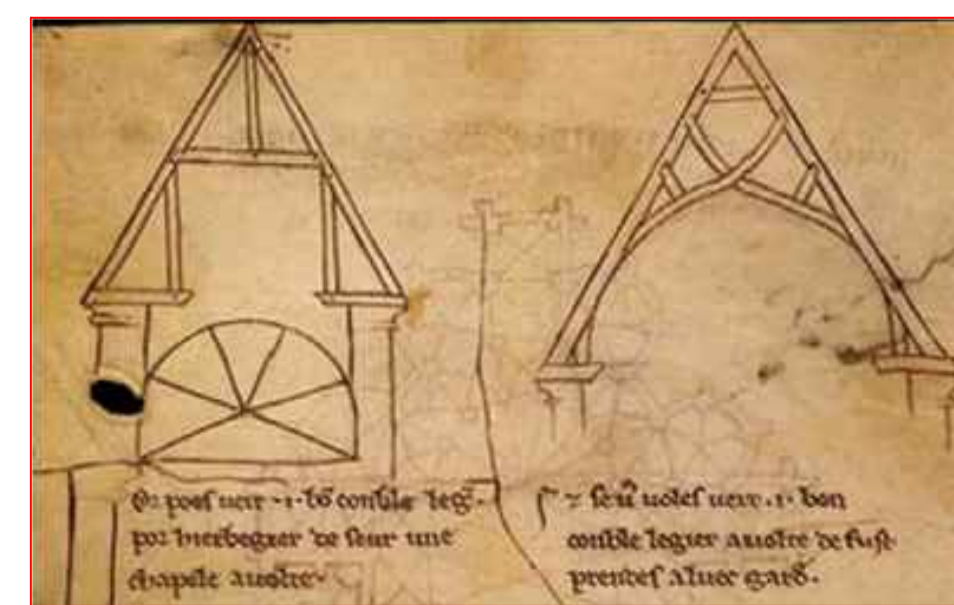 Or poes ueir ·i· bō conble leg̅·
por hierbegier de seur une
chapele auolte·
⁊ se uͦ uoles ueir .i. bon
conble legier auolte de fust
prendes aluec gard̅.